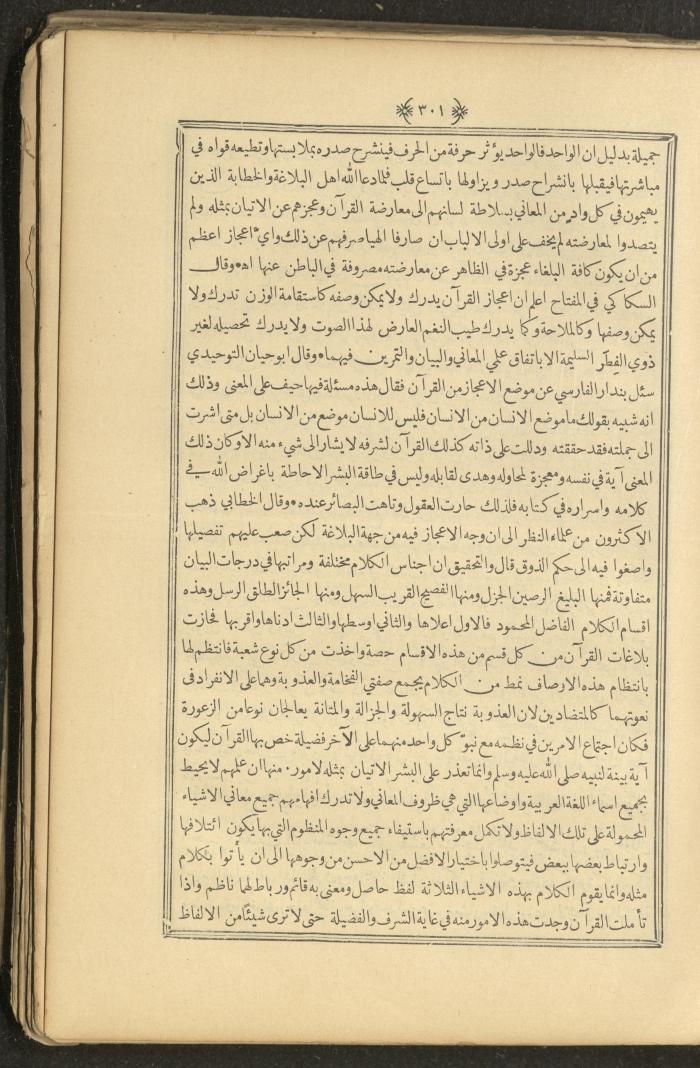 ٣٠١
جميلة بدليل ان الواحد فالواحد يؤثر حرفة من الحرف فينشرح صدره بملابستها وتطيعه قواه في
مباشرتها فيقبلها بانشراح صدر ويزاولها باتساع قلب فلما دعا الله اهل البلاغة والخطابة الذين
يهيمون في كل واد من المعاني بسلاطة لسانهم الى معارضة القرآن وعجزهم عن الاتيان بمثله ولم
يتصدوا لمعارضته لم يخف على اولى الالباب ان صارفا الهيا صرفهم عن ذلك واي اعجاز اعظم
من ان يكون كافة البلغاء عجزة في الظاهر عن معارضته مصروفة في الباطن عنها اه وقال
السكاكي في المفتاح اعلم ان اعجاز القرآن يدرك ولا يمكن وصفه كاستقامة الوزن تدرك ولا
يمكن وصفها وكالملاحة وكما يدرك طيب النغم العارض لهذا الصوت ولا يدرك تحصيله لغير
ذوي الفطر السليمة الا باتفاق علمي المعاني والبيان والتمرين فيهما وقال ابو حيان التوحيدي
سئل بندار الفارسي عن موضع الاعجاز من القرآن فقال هذه مسئلة فيها حيف على المعنى وذلك
انه شبيه بقولك ما موضع الانسان من الانسان فليس للانسان موضع من الانسان بل متى اشرت
الى جملته فقد حققته ودللت على ذاته كذلك القرآن لشرفه لا يشار الى شيء منه الا وكان ذلك
المعنى آية في نفسه ومعجزة لمحاوله وهدى لقابله وليس في طاقة البشر الاحاطة باغراض الله في
كلامه واسراره في كتابه فلذلك حارت العقول وتاهت البصائر عنده وقال الخطابي ذهب
الاكثرون من علماء النظر الى ان وجه الاعجاز فيه من جهة البلاغة لكن صعب عليهم تفصيلها
واصغوا فيه الى حكم الذوق قال والتحقيق ان اجناس الكلام مختلفة ومراتبها في درجات البيان
متفاوتة فمنها البليغ الرصين الجزل ومنها الفصيح القريب السهل ومنها الجائز الطلق الرسل وهذه
اقسام الكلام الفاضل المحمود فالاول اعلاها والثاني اوسطها والثالث ادناها واقربها فحازت
بلاغات القرآن من كل قسم من هذه الاقسام حصة واخذت من كل نوع شعبة فانتظم لها
بانتظام هذه الاوصاف نمط من الكلام يجمع صفتي الفخامة والعذوبة وهما على الانفراد فى
نعوتهما كالمتضادين لان العذوبة نتاج السهولة والجزالة والمتانة يعالجان نوعا من الزعورة
فكان اجتماع الامرين في نظمه مع نبو كل واحد منهما على الآخر فضيلة خص بها القرآن ليكون
آية بينة لنبيه صلى الله عليه وسلم وانما تعذر على البشر الاتيان بمثله لامور. منها ان علمهم لا يحيط
بجميع اسماء اللغة العربية واوضاعها التي هي ظروف المعاني ولا تدرك افهامهم جميع معاني الاشياء
المحمولة على تلك الالفاظ ولا تكمل معرفتهم باستيفاء جميع وجوه المنظوم التي بها يكون ائتلافها
وارتباط بعضها ببعض فيتوصلوا باختيار الافضل من الاحسن من وجوهها الى ان يأتوا بكلام
مثله وانما يقوم الكلام بهذه الاشياء الثلاثة لفظ حاصل ومعنى به قائم ورباط لها ناظم واذا
تأملت القرآن وجدت هذه الامور منه في غاية الشرف والفضيلة حتى لا ترى شيئًا من الالفاظ